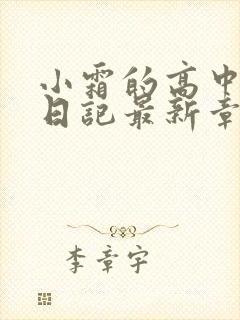 小霜的高中
日記最新章
李章宇